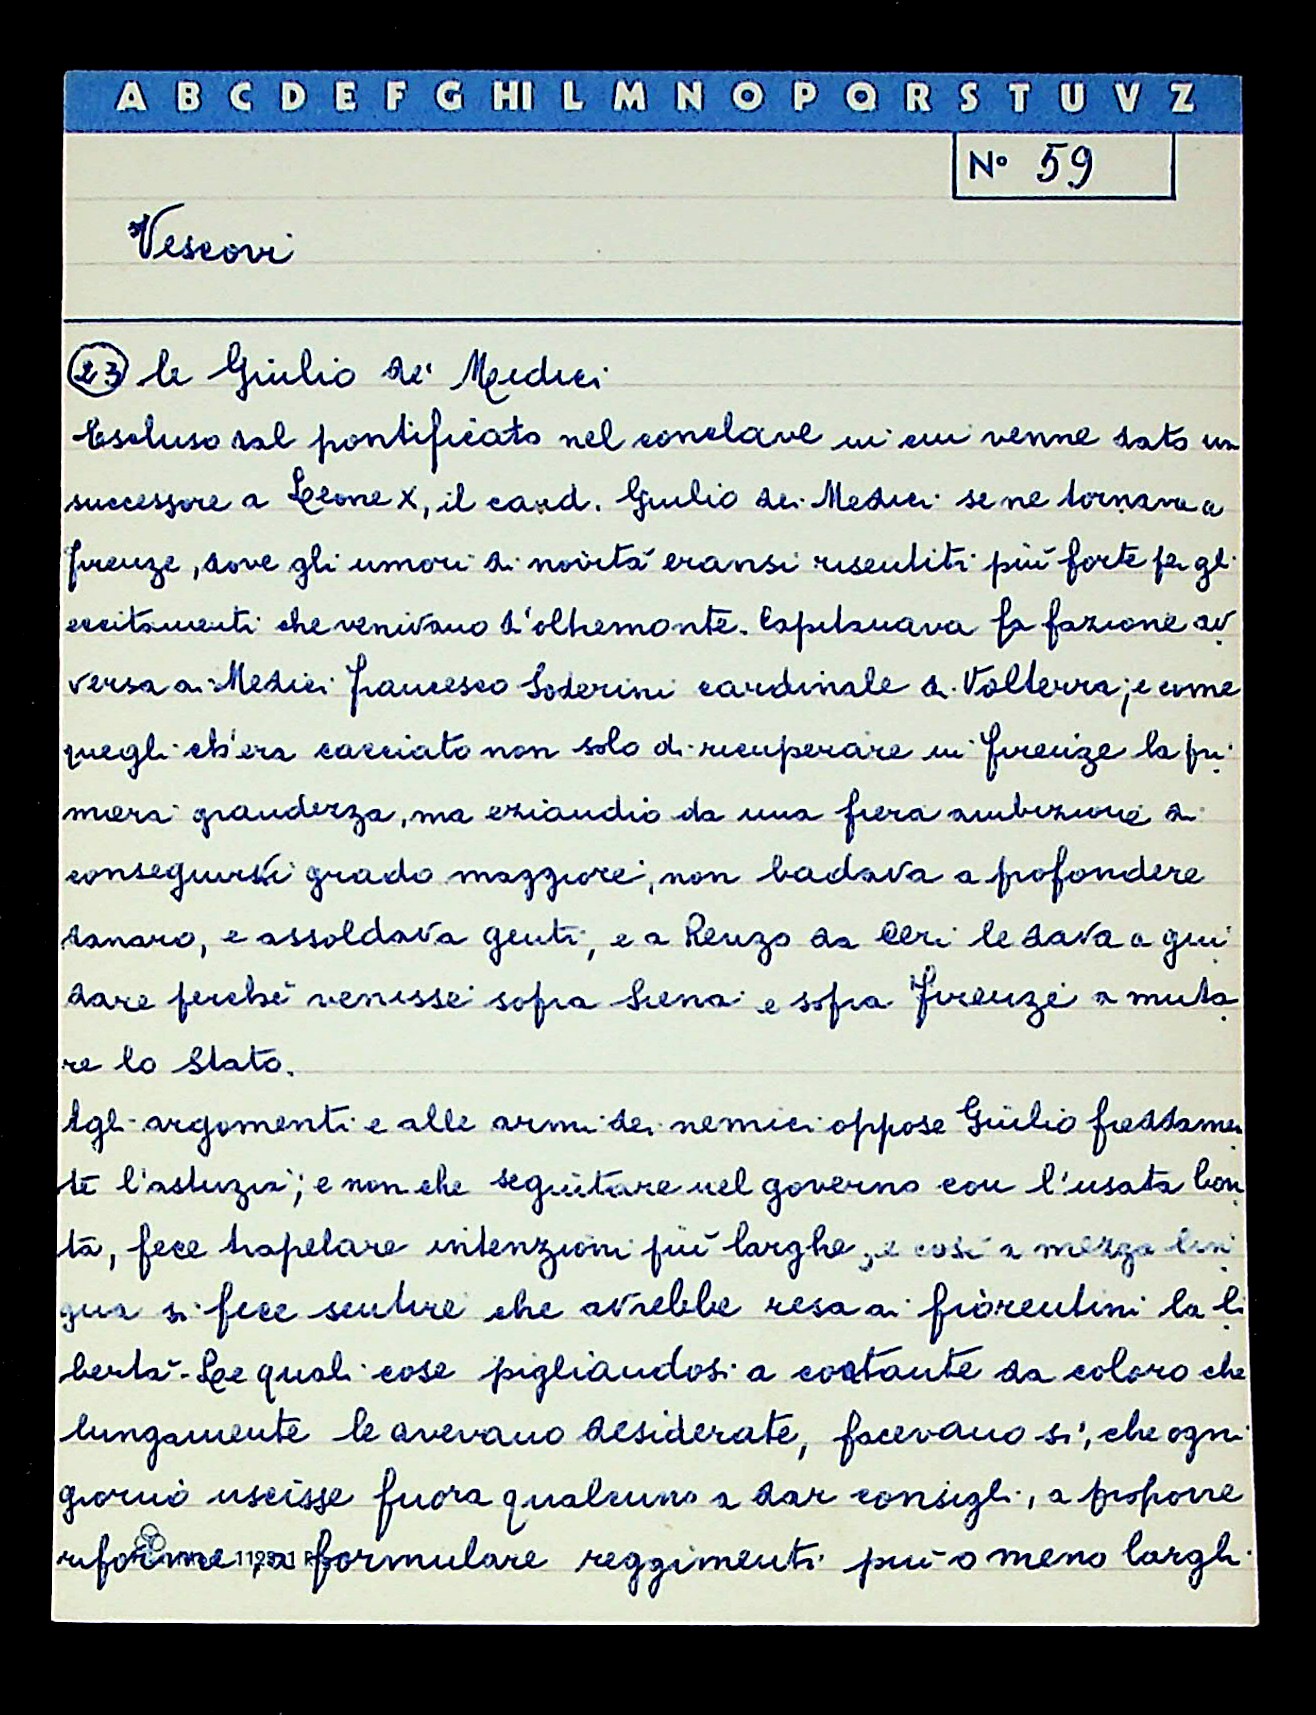 A B C D E F G HI L M N O P Q R S T U V Z
Nº 59
Vescovi
23 le Giulio de' Medici
Escluso dal pontificato nel conclave in cui venne dato un
successore a Leone X, il card. Giulio dei Medici se ne tornava a
Firenze, dove gli umori di novità eransi risentiti più forte per gl
eccitamenti che venivano d'oltremonte. Capitanava la fazione av
versa ai Medici Francesco Soderini cardinale di Volterra; e come
quegli ch'era cacciato non solo di ricuperare in Firenze la pri
miera grandezza, ma eziandio da una fiera ambizione di
conseguirvi grado maggiore, non badava a profondere
danaro, e assoldava genti, e a Renzo da Ceri le dava a gui
dare perché venisse sopra Siena e sopra Firenze a muta
re lo Stato.
Agli argomenti e alle armi dei nemici oppose Giulio freddamen
te l'astuzia; e non che seguitare nel governo con l'usata bon
tà, fece trapelare intenzioni più larghe, e così a mezza lin
gua si fece sentire che avrebbe resa ai fiorentini la li
bertà. Le quali cose pigliandosi a contante da coloro che
lungamente le avevano desiderate, facevano sì, che ogni
giorno uscisse fuora qualcuno a dar consigli, a proporre
riforme, a formulare reggimenti più o meno larghi